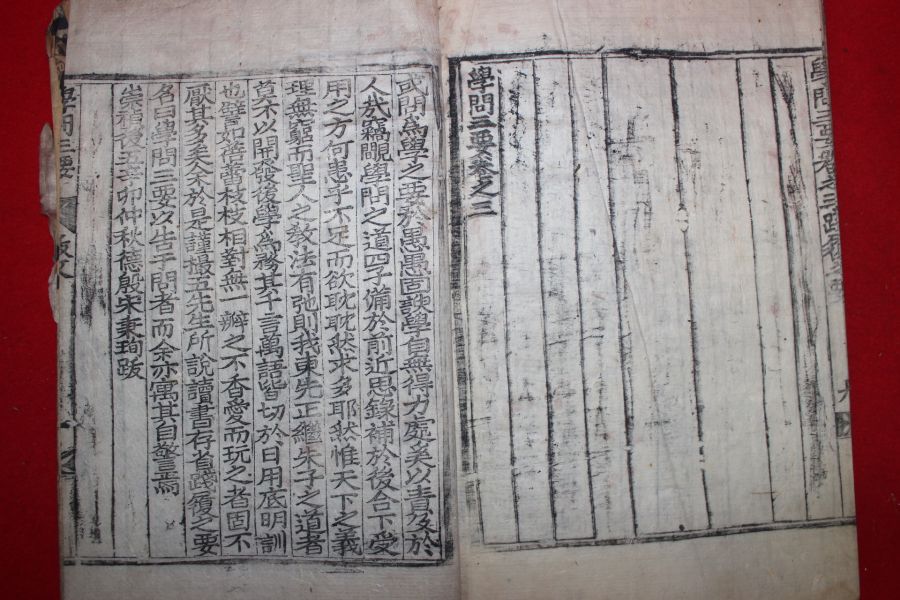 學問三要卷之三
或問爲學之要於愚愚固謏學自無得力處奚以責及於
人哉竊覵學問之道四子備於前近思錄補於後合下受
用之方何患乎不足而欲耽耽然求多耶然惟天下之義
理無窮而聖人之敎法有弛則我東先正繼朱子之道者
莫不以開發後學爲務其千言萬語皆切於日用底明訓
也譬如薝蔔枝枝相對無一瓣之不香愛而玩之者固不
厭其多矣今於是謹撮五先生所說讀書存省踐履之要
名曰學問三要以告于問者而余亦寓其自警焉
崇禎後五辛卯仲秋德殷宋秉珣跋
學問三要
跋